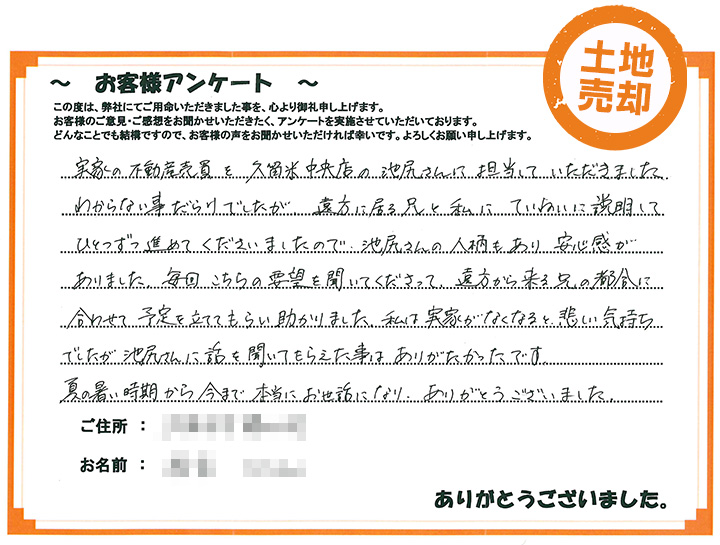 土地
売却
～ お客様アンケート ～
この度は、弊社にてご用命いただきました事を、心より御礼申し上げます。
お客様のご意見・ご感想をお聞かせいただきたく、アンケートを実施させていただいております。
どんなことでも結構ですので、お客様の声をお聞かせいただければ幸いです。よろしくお願い申し上げます。
実家の不動産売買を久留米中央店の池尻さんに担当していただきました。
わからない事だらけでしたが 遠方に居る兄と私に ていねいに説明して
ひとつずつ進めてくださいましたので、池尻さんの人柄もあり 安心感が
ありました。毎回こちらの要望を聞いてくださって、遠方から来る兄の都合に
合わせて予定を立ててもらい助かりました。私は実家がなくなると、悲しい気持ち
でしたが池尻さんに話を聞いてもらえた事はありがたかったです
夏の暑い時期から今まで本当にお世話になり、ありがとうございました。
ご住所 ：
お名前 ：
ありがとうございました。